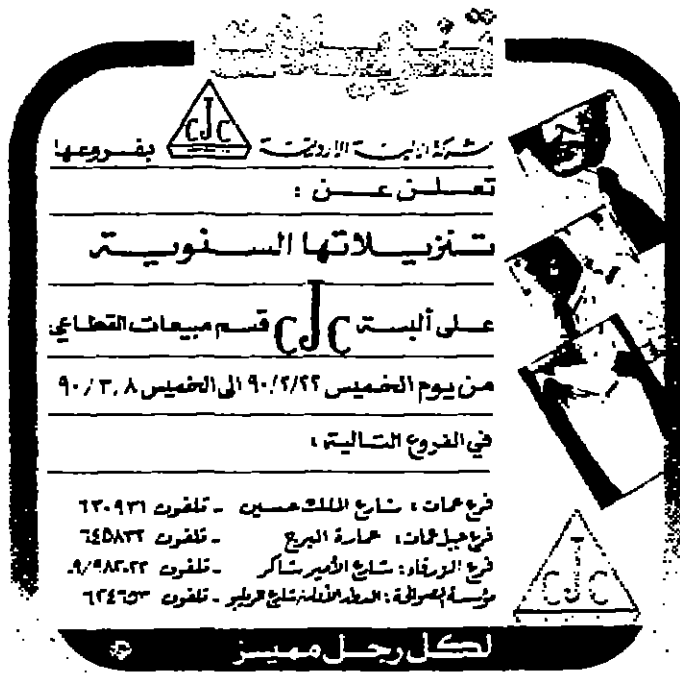 تنزيلات
CJC
شركة الألبسة الأردنية بفروعها
تعلن عن :
تنزيلاتها السنوية
على ألبسة CJC قسم مبيعات القطاعي
من يوم الخميس ٩٠/٢/٢٢ الى الخميس ٩٠/٣/٨
في الفروع التالية :
فرع عمان : شارع الملك حسين - تلفون ٦٣٠٩٣١
فرع جبل عمان : عمارة البرج - تلفون ٦٤٥٨٣٢
فرع الزرقاء : شارع الأمير شاكر - تلفون ٠٩/٩٨٢٠٢٢
مؤسسة تلفون ٦٢٤٦٥٣
CJC
لكل رجل مميز